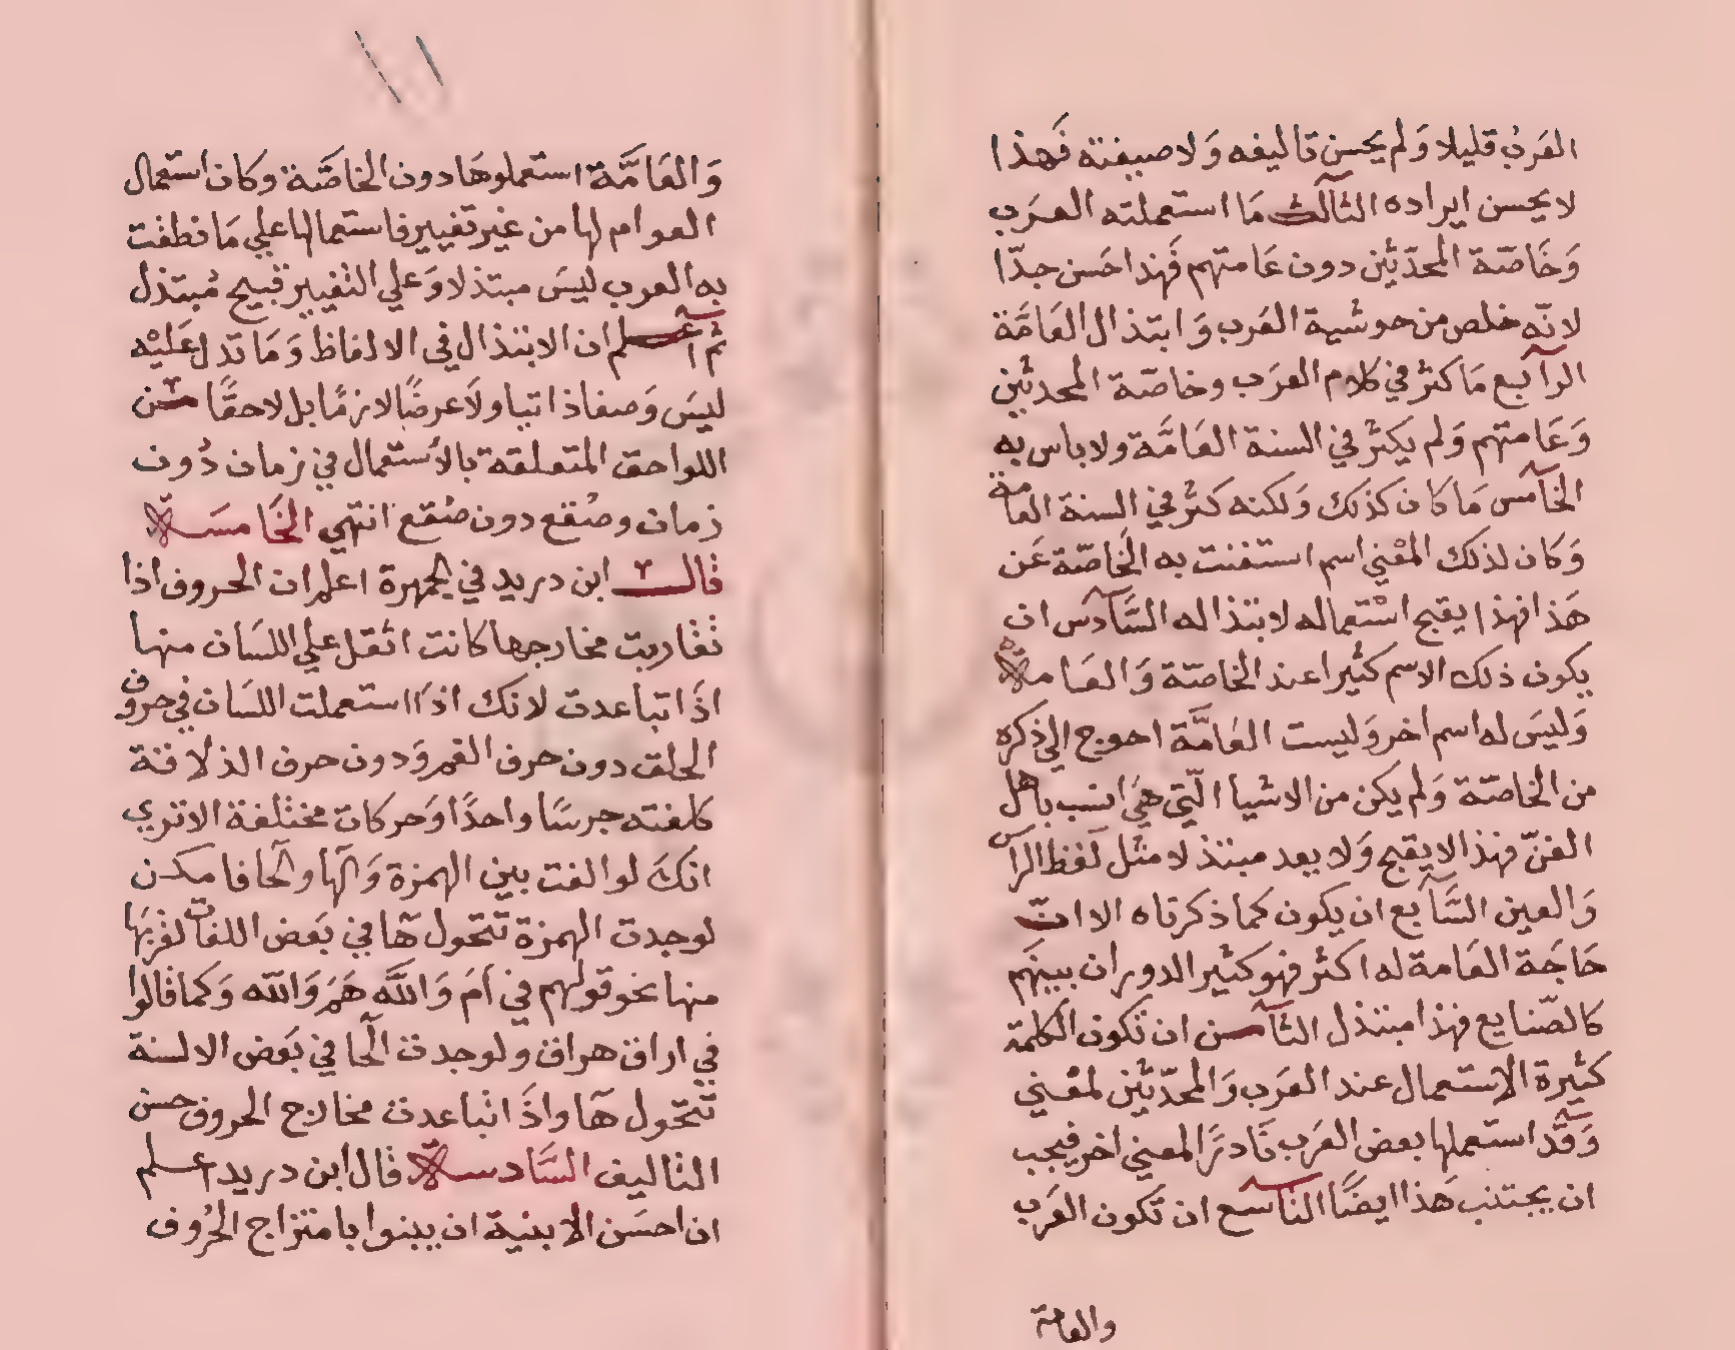 العَرب قليلا وَلم يحسن تاليفه وَلا صيغته فَهذا
لا يحسن ايراده الثالث مَا استعملته العَرَب
وَخَاصّة المحدّثين دون عَامتهم فَهذا حَسن جدّا
لانّه خلص من حوشية العَرب وَابتذال العَامَّة
الرابع مَا كثر في كلام العرَب وخاصّة المحدثين
وَعَامتهم وَلم يكثر في السنة العَامَّة ولا باس به
الخامس مَا كان كذلك وَلكنه كثر في السنة العامة
وَكان لذلك المعْني اسم استغنت به الخَاصّة عَن
هَذا فهذا يقبح استْعماله لابتذاله السَّادس ان
يكون ذلك الاسم كثيرا عند الخاصّة وَالعَامة
وَليسَ له اسم اخر وَليست العَامَّة احوج الي ذكره
من الخاصّة وَلم يكن من الاشيا الّتي هيَ انسب باهل
الفنّ فهذا لا يقبح وَلا يعد مبتذلا مثل لَفظ الراس
وَالعين السَّابع ان يكون كما ذكرناه الا انّ
حَاجَة العَامة له اكثر فهو كثير الدوران بينهم
كالصّنايع فهذا مبتذل الثامن ان تكون الكلمة
كثيرة الاستعمال عند العَرَب وَالمحدّثين لمعْني
وَقَد استعملها بعض العَرَب نَادرًا لمعني اخر فيجب
ان يجتنب هَذا ايضًا التاسع ان تَكون العَرَب
والعامة
وَالعَامَّة استعملوهَا دون الخاصَّة وكان استعمال
العوام لها من غير تغيير فاستعمالها علي مَا نطقت
به العرب ليسَ مبتذلا وَعلي التغيير قبيح مُبتذل
ثم اعلم ان الابتذال في الالفاظ وَمَا تدل عَليْه
ليسَ وَصفا ذاتيا ولَا عرضًا لازمًا بل لاحقًا من
اللواحق المتعلقة بالاستعمال في زمان دُون
زمان وصُقع دون صُقع انتهي الخَامسَة
قالَ ابن دريد في الجمهرة اعلم ان الحروف اذا
تقاربت مخارجها كانت اثقل علي اللسَان منها
اذَا تباعدت لانك اذَا استعملت اللسَان في حروف
الحلق دون حرف الفم وَدون حرف الذلاقة
كلفته جرسًا واحدًا وَحركات مختلفة الا تري
انكَ لو الفت بين الهمزة وَالها والحَا فامكن
لوجدت الهمزة تتحول هَا في بَعض اللغات لقربَها
منها نحو قولهم في اَمَ وَاللَّه هَمَ وَاللّه وَكما قالوا
في اراق هراق ولوجدت الحا في بَعض الالسنة
تتحول هَا واذَا تباعدت مخارج الحروف حسن
التاليف السَّادسة قال ابن دريد اعلم
ان احسَن الابنية ان يبنوا بامتزاج الحُروف